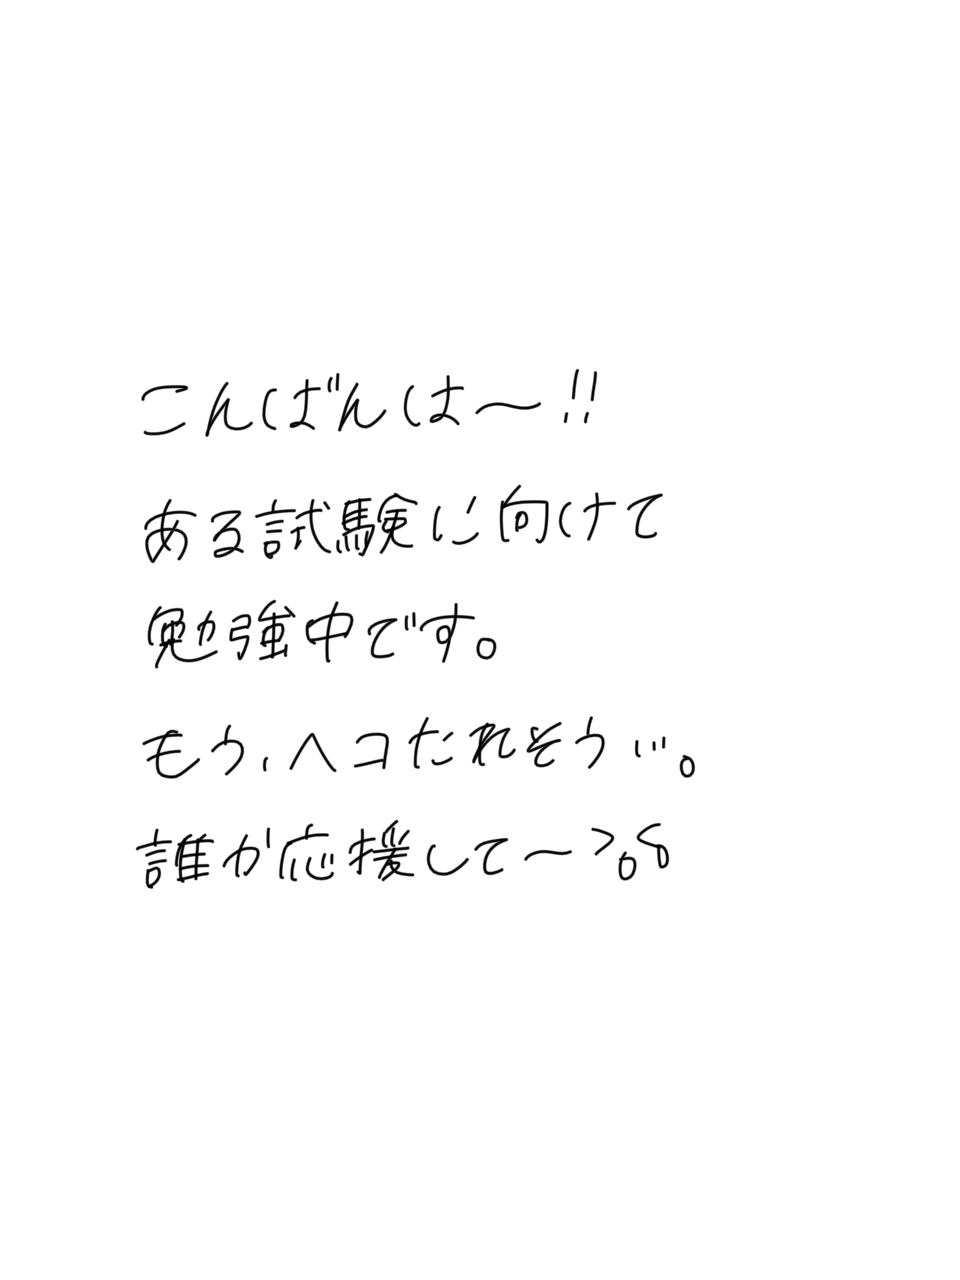 こんばんは〜!!
ある試験に向けて
勉強中です。
もう、ヘコたれそう…。
誰か応援して〜>。<。